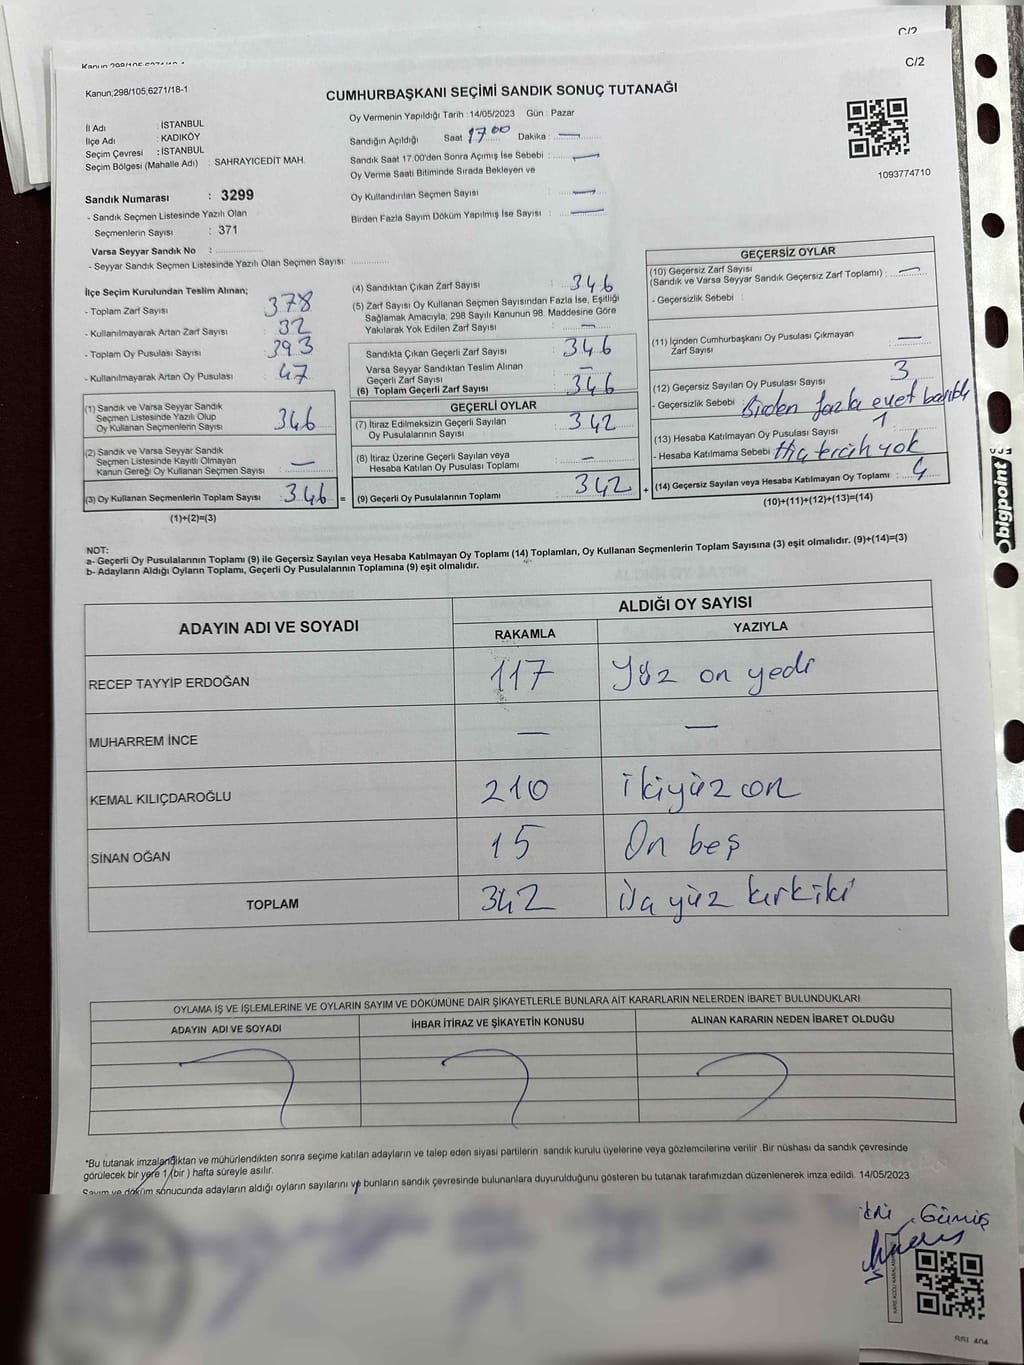 C/2
Kanun;298/105;6271/18-1
C/2
CUMHURBAŞKANI SEÇİMİ SANDIK SONUÇ TUTANAĞI
İl Adı : İSTANBUL
İlçe Adı : KADIKÖY
Seçim Çevresi : İSTANBUL
Seçim Bölgesi (Mahalle Adı) : SAHRAYICEDİT MAH.
Oy Vermenin Yapıldığı Tarih : 14/05/2023 Gün : Pazar
Sandığın Açıldığı Saat 17 00 Dakika : —
Sandık Saat 17.00'den Sonra Açımış İse Sebebi : —
Oy Verme Saati Bitiminde Sırada Bekleyen ve
Oy Kullandırılan Seçmen Sayısı —
Birden Fazla Sayım Döküm Yapılmış İse Sayısı : —
1093774710
Sandık Numarası : 3299
- Sandık Seçmen Listesinde Yazılı Olan
Seçmenlerin Sayısı : 371
Varsa Seyyar Sandık No :
- Seyyar Sandık Seçmen Listesinde Yazılı Olan Seçmen Sayısı:
İlçe Seçim Kurulundan Teslim Alınan;
- Toplam Zarf Sayısı : 378
- Kullanılmayarak Artan Zarf Sayısı : 32
- Toplam Oy Pusulası Sayısı : 393
- Kullanılmayarak Artan Oy Pusulası : 47
(1) Sandık ve Varsa Seyyar Sandık
Seçmen Listesinde Yazılı Olup
Oy Kullanan Seçmenlerin Sayısı : 346
(2) Sandık ve Varsa Seyyar Sandık
Seçmen Listesinde Kayıtlı Olmayan
Kanun Gereği Oy Kullanan Seçmen Sayısı : —
(3) Oy Kullanan Seçmenlerin Toplam Sayısı : 346 =
(1)+(2)=(3)
(4) Sandıktan Çıkan Zarf Sayısı : 346
(5) Zarf Sayısı Oy Kullanan Seçmen Sayısından Fazla İse, Eşitliği
Sağlamak Amacıyla, 298 Sayılı Kanunun 98. Maddesine Göre
Yakılarak Yok Edilen Zarf Sayısı : —
Sandıkta Çıkan Geçerli Zarf Sayısı : 346
Varsa Seyyar Sandıktan Teslim Alınan
Geçerli Zarf Sayısı : —
(6) Toplam Geçerli Zarf Sayısı : 346
GEÇERLİ OYLAR
(7) İtiraz Edilmeksizin Geçerli Sayılan
Oy Pusulalarının Sayısı : 342
(8) İtiraz Üzerine Geçerli Sayılan veya
Hesaba Katılan Oy Pusulası Toplamı : —
(9) Geçerli Oy Pusulalarının Toplamı : 342 +
GEÇERSİZ OYLAR
(10) Geçersiz Zarf Sayısı
(Sandık ve Varsa Seyyar Sandık Geçersiz Zarf Toplamı) : —
- Geçersizlik Sebebi :
(11) İçinden Cumhurbaşkanı Oy Pusulası Çıkmayan
Zarf Sayısı : —
(12) Geçersiz Sayılan Oy Pusulası Sayısı : 3
- Geçersizlik Sebebi : Birden fazla evet basıldı
(13) Hesaba Katılmayan Oy Pusulası Sayısı : 1
- Hesaba Katılmama Sebebi : Hiç tercih yok
(14) Geçersiz Sayılan veya Hesaba Katılmayan Oy Toplamı : 4
(10)+(11)+(12)+(13)=(14)
bigpoint
NOT:
a- Geçerli Oy Pusulalarının Toplamı (9) ile Geçersiz Sayılan veya Hesaba Katılmayan Oy Toplamı (14) Toplamları, Oy Kullanan Seçmenlerin Toplam Sayısına (3) eşit olmalıdır. (9)+(14)=(3)
b- Adayların Aldığı Oyların Toplamı, Geçerli Oy Pusulalarının Toplamına (9) eşit olmalıdır.
ADAYIN ADI VE SOYADI
ALDIĞI OY SAYISI
RAKAMLA YAZIYLA
RECEP TAYYİP ERDOĞAN 117 Yüz on yedi
MUHARREM İNCE — —
KEMAL KILIÇDAROĞLU 210 ikiyüz on
SİNAN OĞAN 15 On beş
TOPLAM 342 yüz kırkiki
OYLAMA İŞ VE İŞLEMLERİNE VE OYLARIN SAYIM VE DÖKÜMÜNE DAİR ŞİKAYETLERLE BUNLARA AİT KARARLARIN NELERDEN İBARET BULUNDUKLARI
ADAYIN ADI VE SOYADI İHBAR İTİRAZ VE ŞİKAYETİN KONUSU ALINAN KARARIN NEDEN İBARET OLDUĞU
*Bu tutanak imzalandıktan ve mühürlendikten sonra seçime katılan adayların ve talep eden siyasi partilerin sandık kurulu üyelerine veya gözlemcilerine verilir .Bir nüshası da sandık çevresinde
görülecek bir yere 1 (bir ) hafta süreyle asılır.
Sayım ve döküm sonucunda adayların aldığı oyların sayılarını ve bunların sandık çevresinde bulunanlara duyurulduğunu gösteren bu tutanak tarafımızdan düzenlenerek imza edildi. 14/05/2023
Gümüş